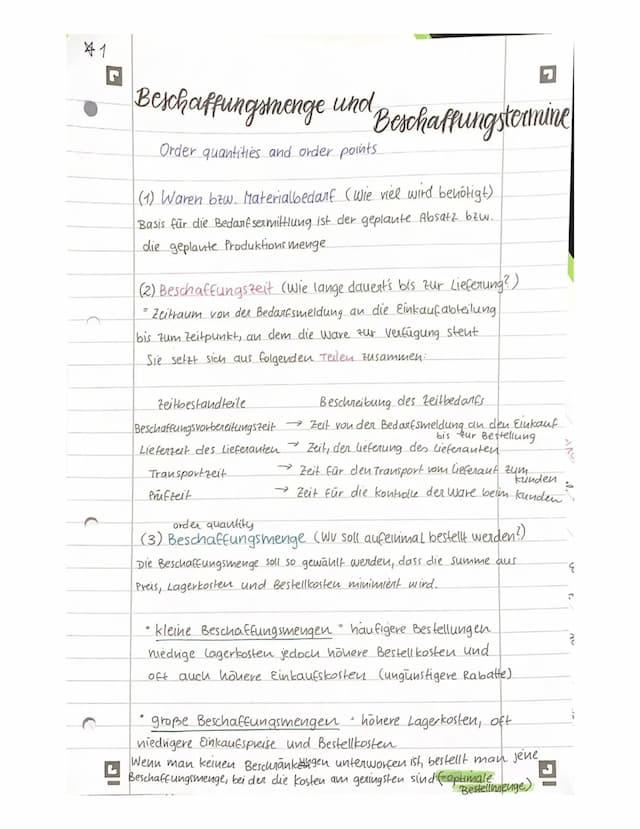 *1
Beschaffungsmenge und
Beschaffungstermine
Order quantities and order points
(1) Waren bzw. Materialbedarf (Wie viel wird benötigt)
Basis für die Bedarfsermittlung ist der geplante Absatz bzw.
die geplante Produktionsmenge
(2) Beschaffungszeit (Wie lange dauert's bis zur Lieferung?)
= Zeitraum von der Bedarfsmeldung an die Einkaufabteilung
bis zum Zeitpunkt, an dem die Ware zur Verfügung steht
Sie setzt sich aus folgenden Teilen zusammen:
Zeitbestandteile Beschreibung des Zeitbedarfs
Beschaffungsvorbereitungszeit → Zeit von der Bedarfsmeldung an den Einkauf
bis zur Bestellung
Lieferzeit des Lieferanten → Zeit, der Lieferung des Lieferanten
Transportzeit → Zeit für den Transport vom Lieferauf zum
Kunden
Prüfzeit → Zeit für die Kontrolle der Ware beim Kunden
order quantity
(3) Beschaffungsmenge (WV soll aufeinmal bestellt werden?)
Die Beschaffungsmenge soll so gewählt werden, dass die Summe aus
Preis, Lagerkosten und Bestellkosten minimiert wird.
* kleine Beschaffungsmengen = häufigere Bestellungen
niedrige Lagerkosten jedoch höhere Bestellkosten und
oft auch höhere Einkaufskosten (ungünstigere Rabatte)
* große Beschaffungsmengen = höhere Lagerkosten, oft
niedrigere Einkaufspreise und Bestellkosten
Wenn man keinen Beschränkungen unterworfen ist, bestellt man jene
Beschaffungsmenge, bei der die Kosten am geringsten sind (=optimale
Bestellmenge)